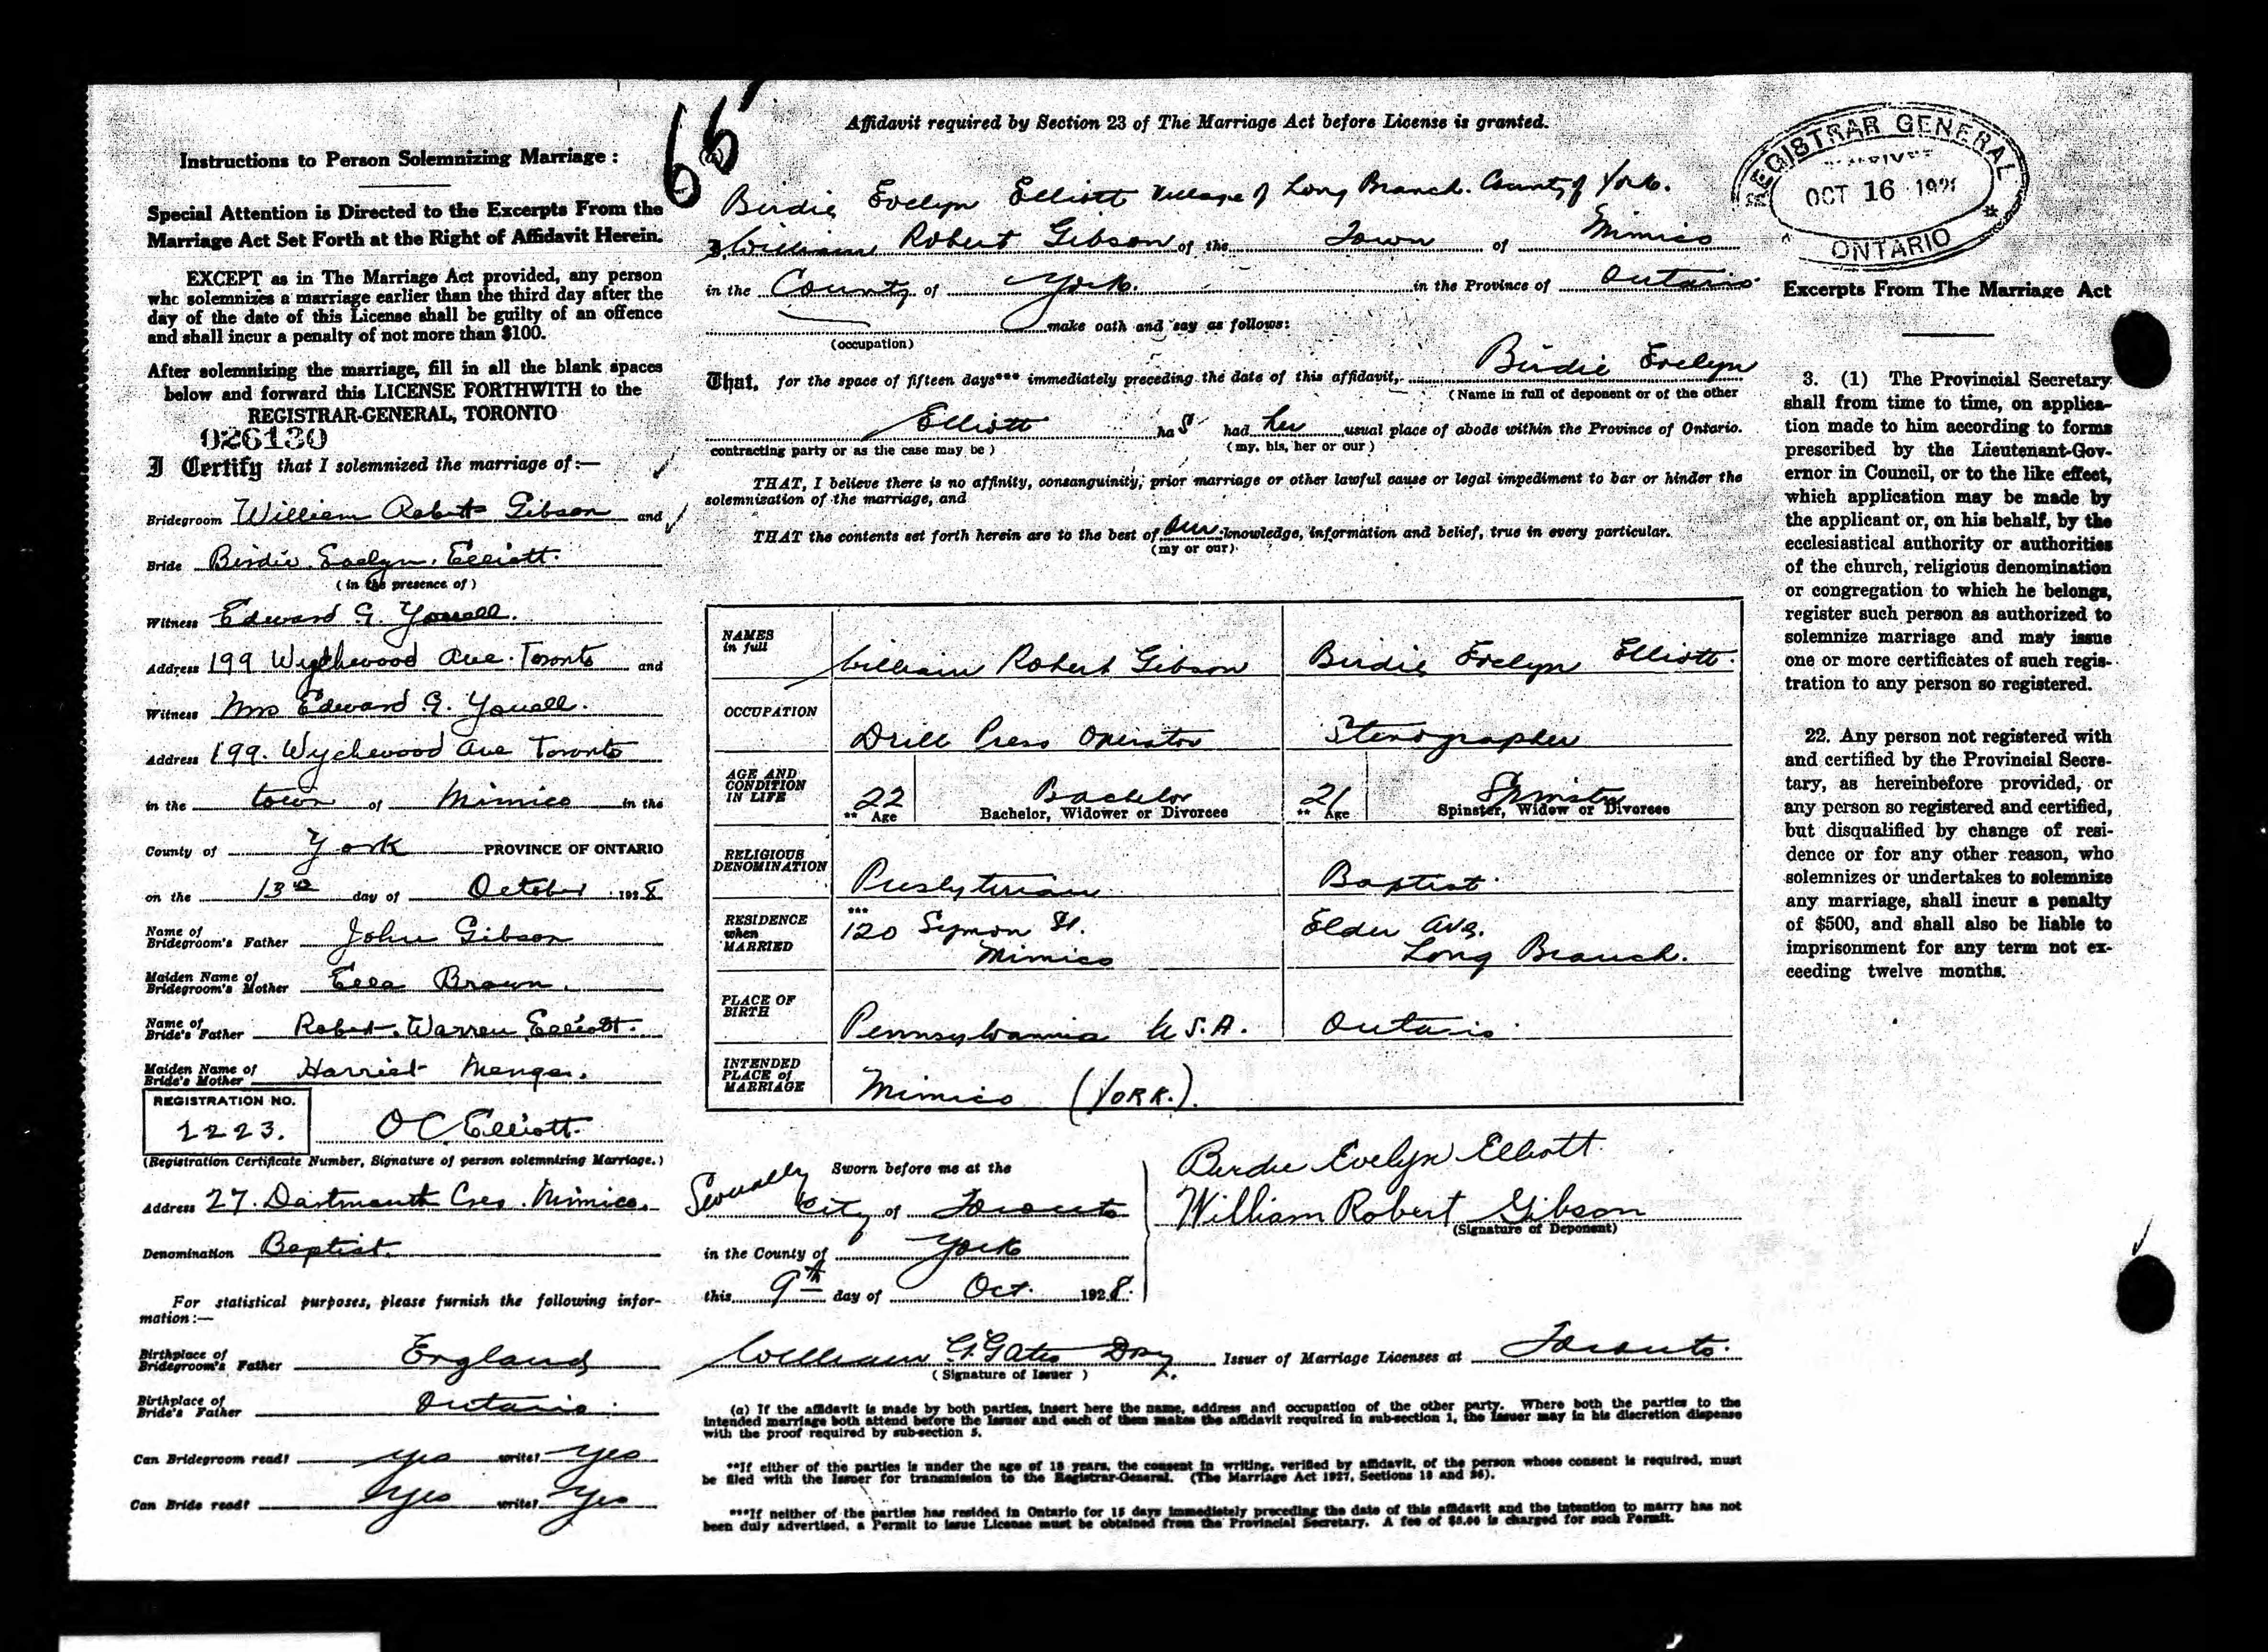 65
Instructions to Person Solemnizing Marriage :
Special Attention is Directed to the Excerpts From the
Marriage Act Set Forth at the Right of Affidavit Herein.
EXCEPT as in The Marriage Act provided, any person
who solemnizes a marriage earlier than the third day after the
day of the date of this License shall be guilty of an offence
and shall incur a penalty of not more than $100.
After solemnizing the marriage, fill in all the blank spaces
below and forward this LICENSE FORTHWITH to the
REGISTRAR-GENERAL, TORONTO
026130
I Certify that I solemnized the marriage of:—
Bridegroom William Robert Gibson and
Bride Birdie Evelyn Elliott.
(in the presence of)
Witness Edward G. Youell.
Address 199 Wychwood Ave. Toronto and
Witness Mrs Edward G. Youell.
Address 199. Wychewood Ave Toronto
in the town of Mimico in the
County of York PROVINCE OF ONTARIO
on the 13th day of October 1928
Name of
Bridegroom's Father John Gibson
Maiden Name of
Bridegroom's Mother Ella Brown.
Name of
Bride's Father Robert Warren Elliott.
Maiden Name of
Bride's Mother Harriet
REGISTRATION NO.
2223. O C Elliott.
(Registration Certificate Number, Signature of person solemnizing Marriage.)
Address 27. Dartmouth Cres. Mimico.
Denomination Baptist.
For statistical purposes, please furnish the following infor-
mation :—
Birthplace of
Bridegroom's Father England
Birthplace of
Bride's Father Ontario.
Can Bridegroom read? yes write? yes
Can Bride read? yes write? yes
Affidavit required by Section 23 of The Marriage Act before License is granted.
(a)
Birdie Evelyn Elliott Village of Long Branch. County of York.
I, William Robert Gibson of the Town of Mimico
in the County of York. in the Province of Ontario.
make oath and say as follows:
(occupation)
That, for the space of fifteen days*** immediately preceding the date of this affidavit, Birdie Evelyn
(Name in full of deponent or of the other
Elliott has had her usual place of abode within the Province of Ontario.
contracting party or as the case may be) (my, his, her or our)
THAT, I believe there is no affinity, consanguinity, prior marriage or other lawful cause or legal impediment to bar or hinder the
solemnization of the marriage, and
THAT the contents set forth herein are to the best of our knowledge, information and belief, true in every particular.
(my or our)
NAMES
in full William Robert Gibson Birdie Evelyn Elliott.
OCCUPATION Drill Press Operator Stenographer
AGE AND
CONDITION
IN LIFE 22 Bachelor 21 Spinster
** Age Bachelor, Widower or Divorcee ** Age Spinster, Widow or Divorcee
RELIGIOUS
DENOMINATION Presbyterian Baptist.
RESIDENCE
when
MARRIED *** 120 Symon St. Elder Ave.
Mimico Long Branch.
PLACE OF
BIRTH Pennsylvania U.S.A. Ontario.
INTENDED
PLACE of
MARRIAGE Mimico (YORK.).
Severally Sworn before me at the
City of Toronto
in the County of York
this 9th day of Oct. 1928.
Birdie Evelyn Elliott.
William Robert Gibson
(Signature of Deponent)
William G. Gates Issuer of Marriage Licenses at Toronto.
(Signature of Issuer)
(a) If the affidavit is made by both parties, insert here the name, address and occupation of the other party. Where both the parties to the
intended marriage both attend before the Issuer and each of them makes the affidavit required in sub-section 1, the Issuer may in his discretion dispense
with the proof required by sub-section 5.
**If either of the parties is under the age of 18 years, the consent in writing, verified by affidavit, of the person whose consent is required, must
be filed with the Issuer for transmission to the Registrar-General. (The Marriage Act 1927, Sections 18 and 26).
***If neither of the parties has resided in Ontario for 15 days immediately preceding the date of this affidavit and the intention to marry has not
been duly advertised, a Permit to issue License must be obtained from the Provincial Secretary. A fee of $5.00 is charged for such Permit.
REGISTRAR GENERAL
OCT 16 192
ONTARIO
Excerpts From The Marriage Act
3. (1) The Provincial Secretary
shall from time to time, on applica-
tion made to him according to forms
prescribed by the Lieutenant-Gov-
ernor in Council, or to the like effect,
which application may be made by
the applicant or, on his behalf, by the
ecclesiastical authority or authorities
of the church, religious denomination
or congregation to which he belongs,
register such person as authorized to
solemnize marriage and may issue
one or more certificates of such regis-
tration to any person so registered.
22. Any person not registered with
and certified by the Provincial Secre-
tary, as hereinbefore provided, or
any person so registered and certified,
but disqualified by change of resi-
dence or for any other reason, who
solemnizes or undertakes to solemnize
any marriage, shall incur a penalty
of $500, and shall also be liable to
imprisonment for any term not ex-
ceeding twelve months.